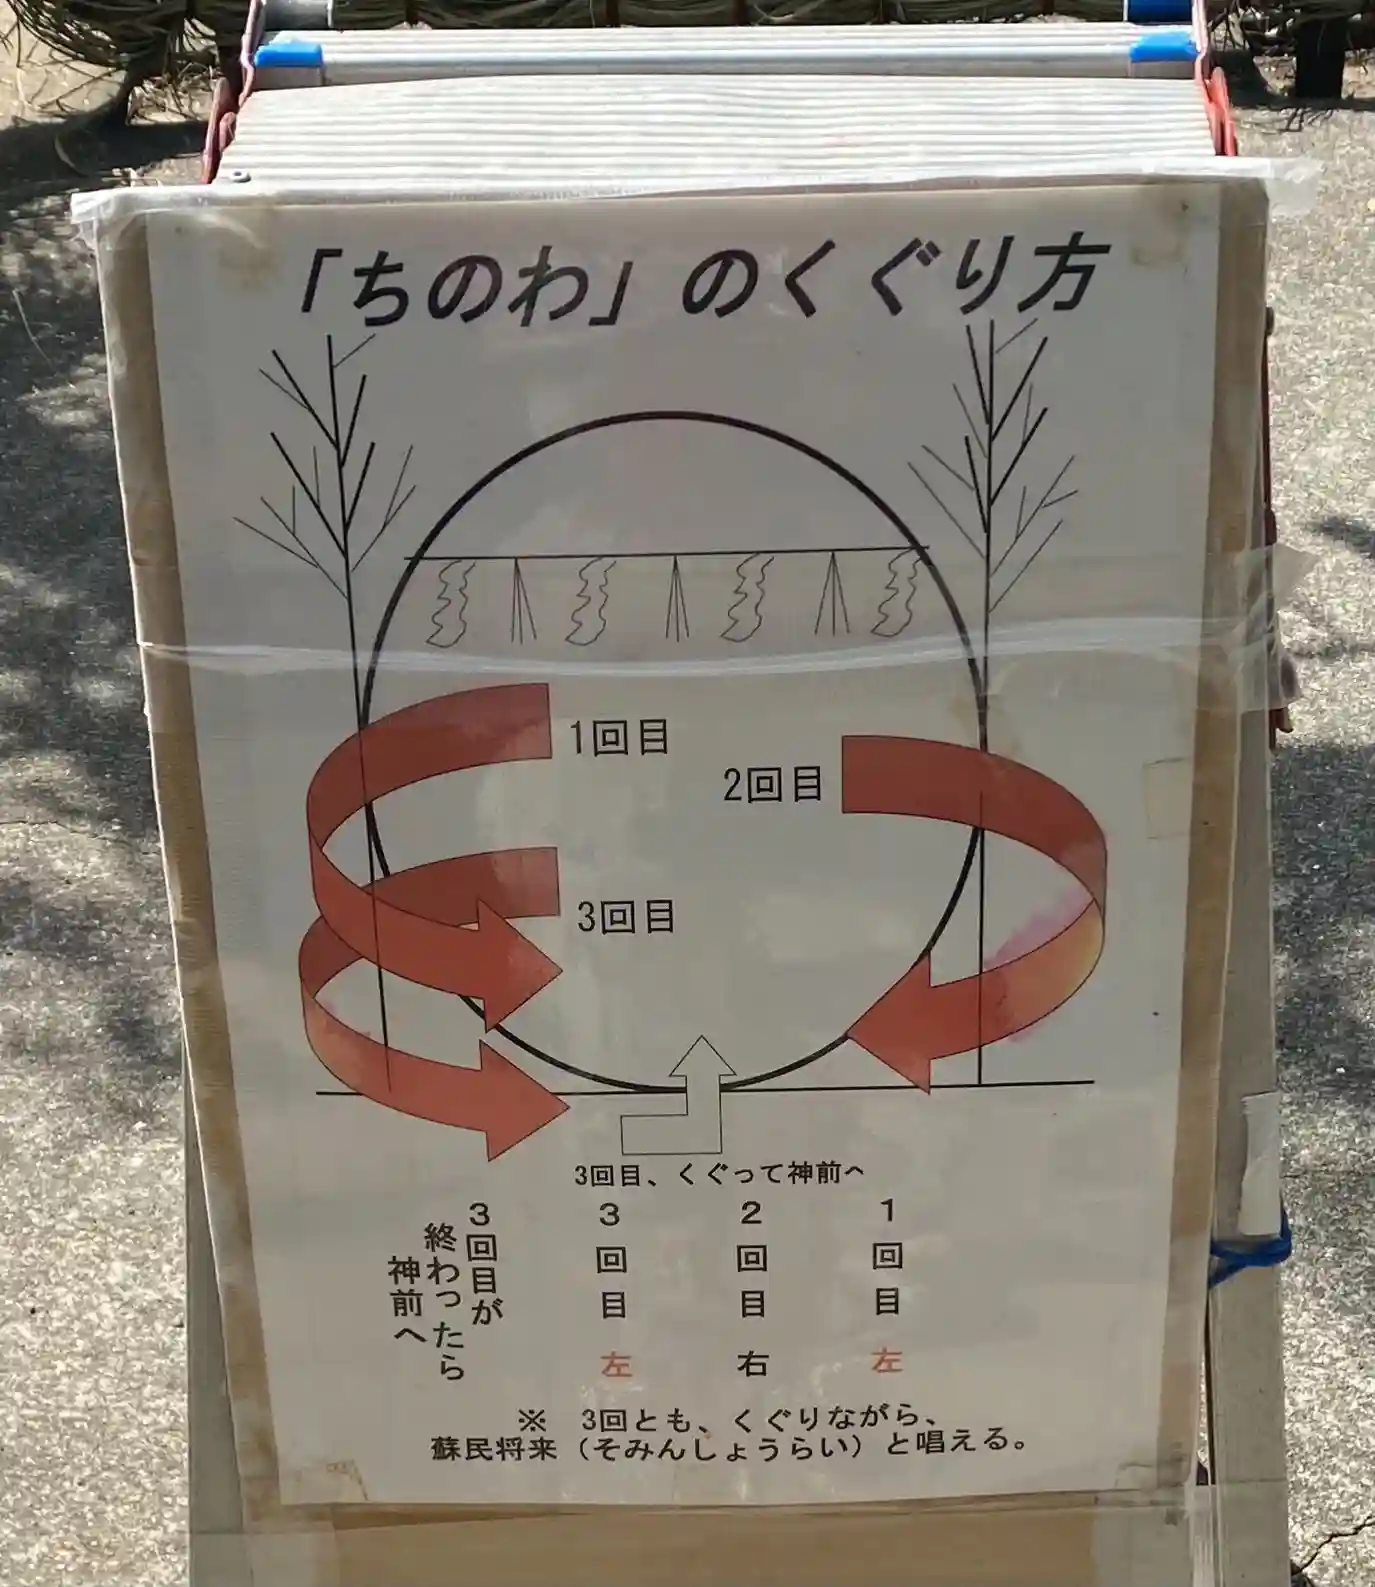 「ちのわ」のくぐり方
1回目
2回目
3回目
3回目、くぐって神前へ
1回目 左
2回目 右
3回目 左
3回目が
終わったら
神前へ
※ 3回とも、くぐりながら、
蘇民将来（そみんしょうらい）と唱える。